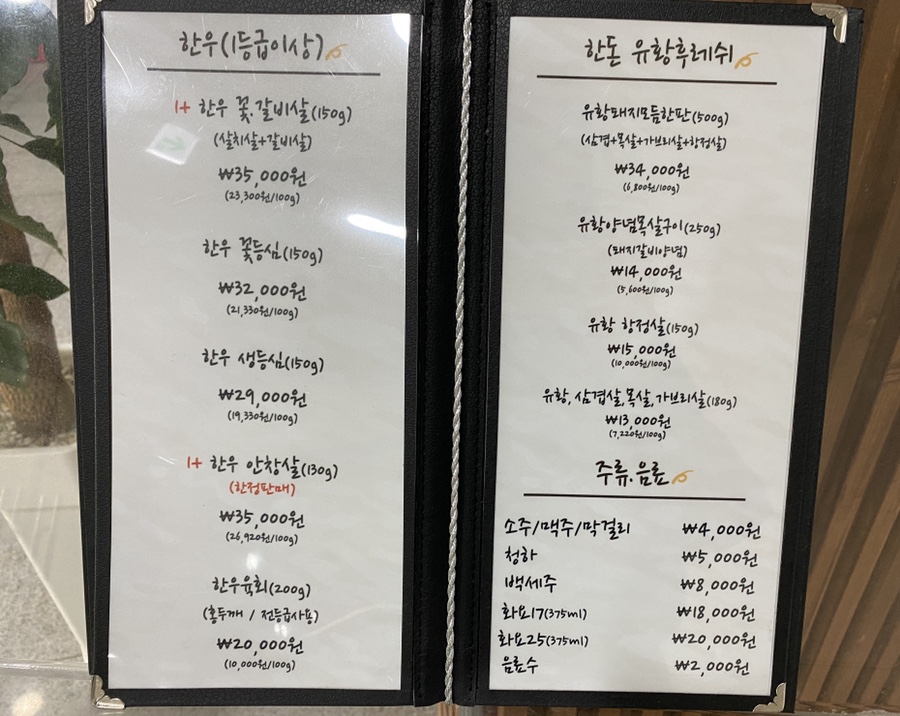 한우(1등급이상)
1+ 한우 꽃.갈비살(150g)
(살치살+갈비살)
₩35,000원
(23,300원/100g)
한우 꽃등심(150g)
₩32,000원
(21,330원/100g)
한우 생등심(150g)
₩29,000원
(19,330원/100g)
1+ 한우 안창살(130g)
(한정판매)
₩35,000원
(26,920원/100g)
한우육회(200g)
(홍두깨 / 전등급사용)
₩20,000원
(10,000원/100g)
한돈 유황후레쉬
유황돼지모듬한판(500g)
(삼겹+목살+가브리살+항정살)
₩34,000원
(6,800원/100g)
유황양념목살구이(250g)
(돼지갈비양념)
₩14,000원
(5,600원/100g)
유황 항정살(150g)
₩15,000원
(10,000원/100g)
유황, 삼겹살,목살,가브리살(180g)
₩13,000원
(7,220원/100g)
주류.음료
소주/맥주/막걸리 ₩4,000원
청하 ₩5,000원
백세주 ₩8,000원
화요17(375ml) ₩18,000원
화요25(375ml) ₩20,000원
음료수 ₩2,000원